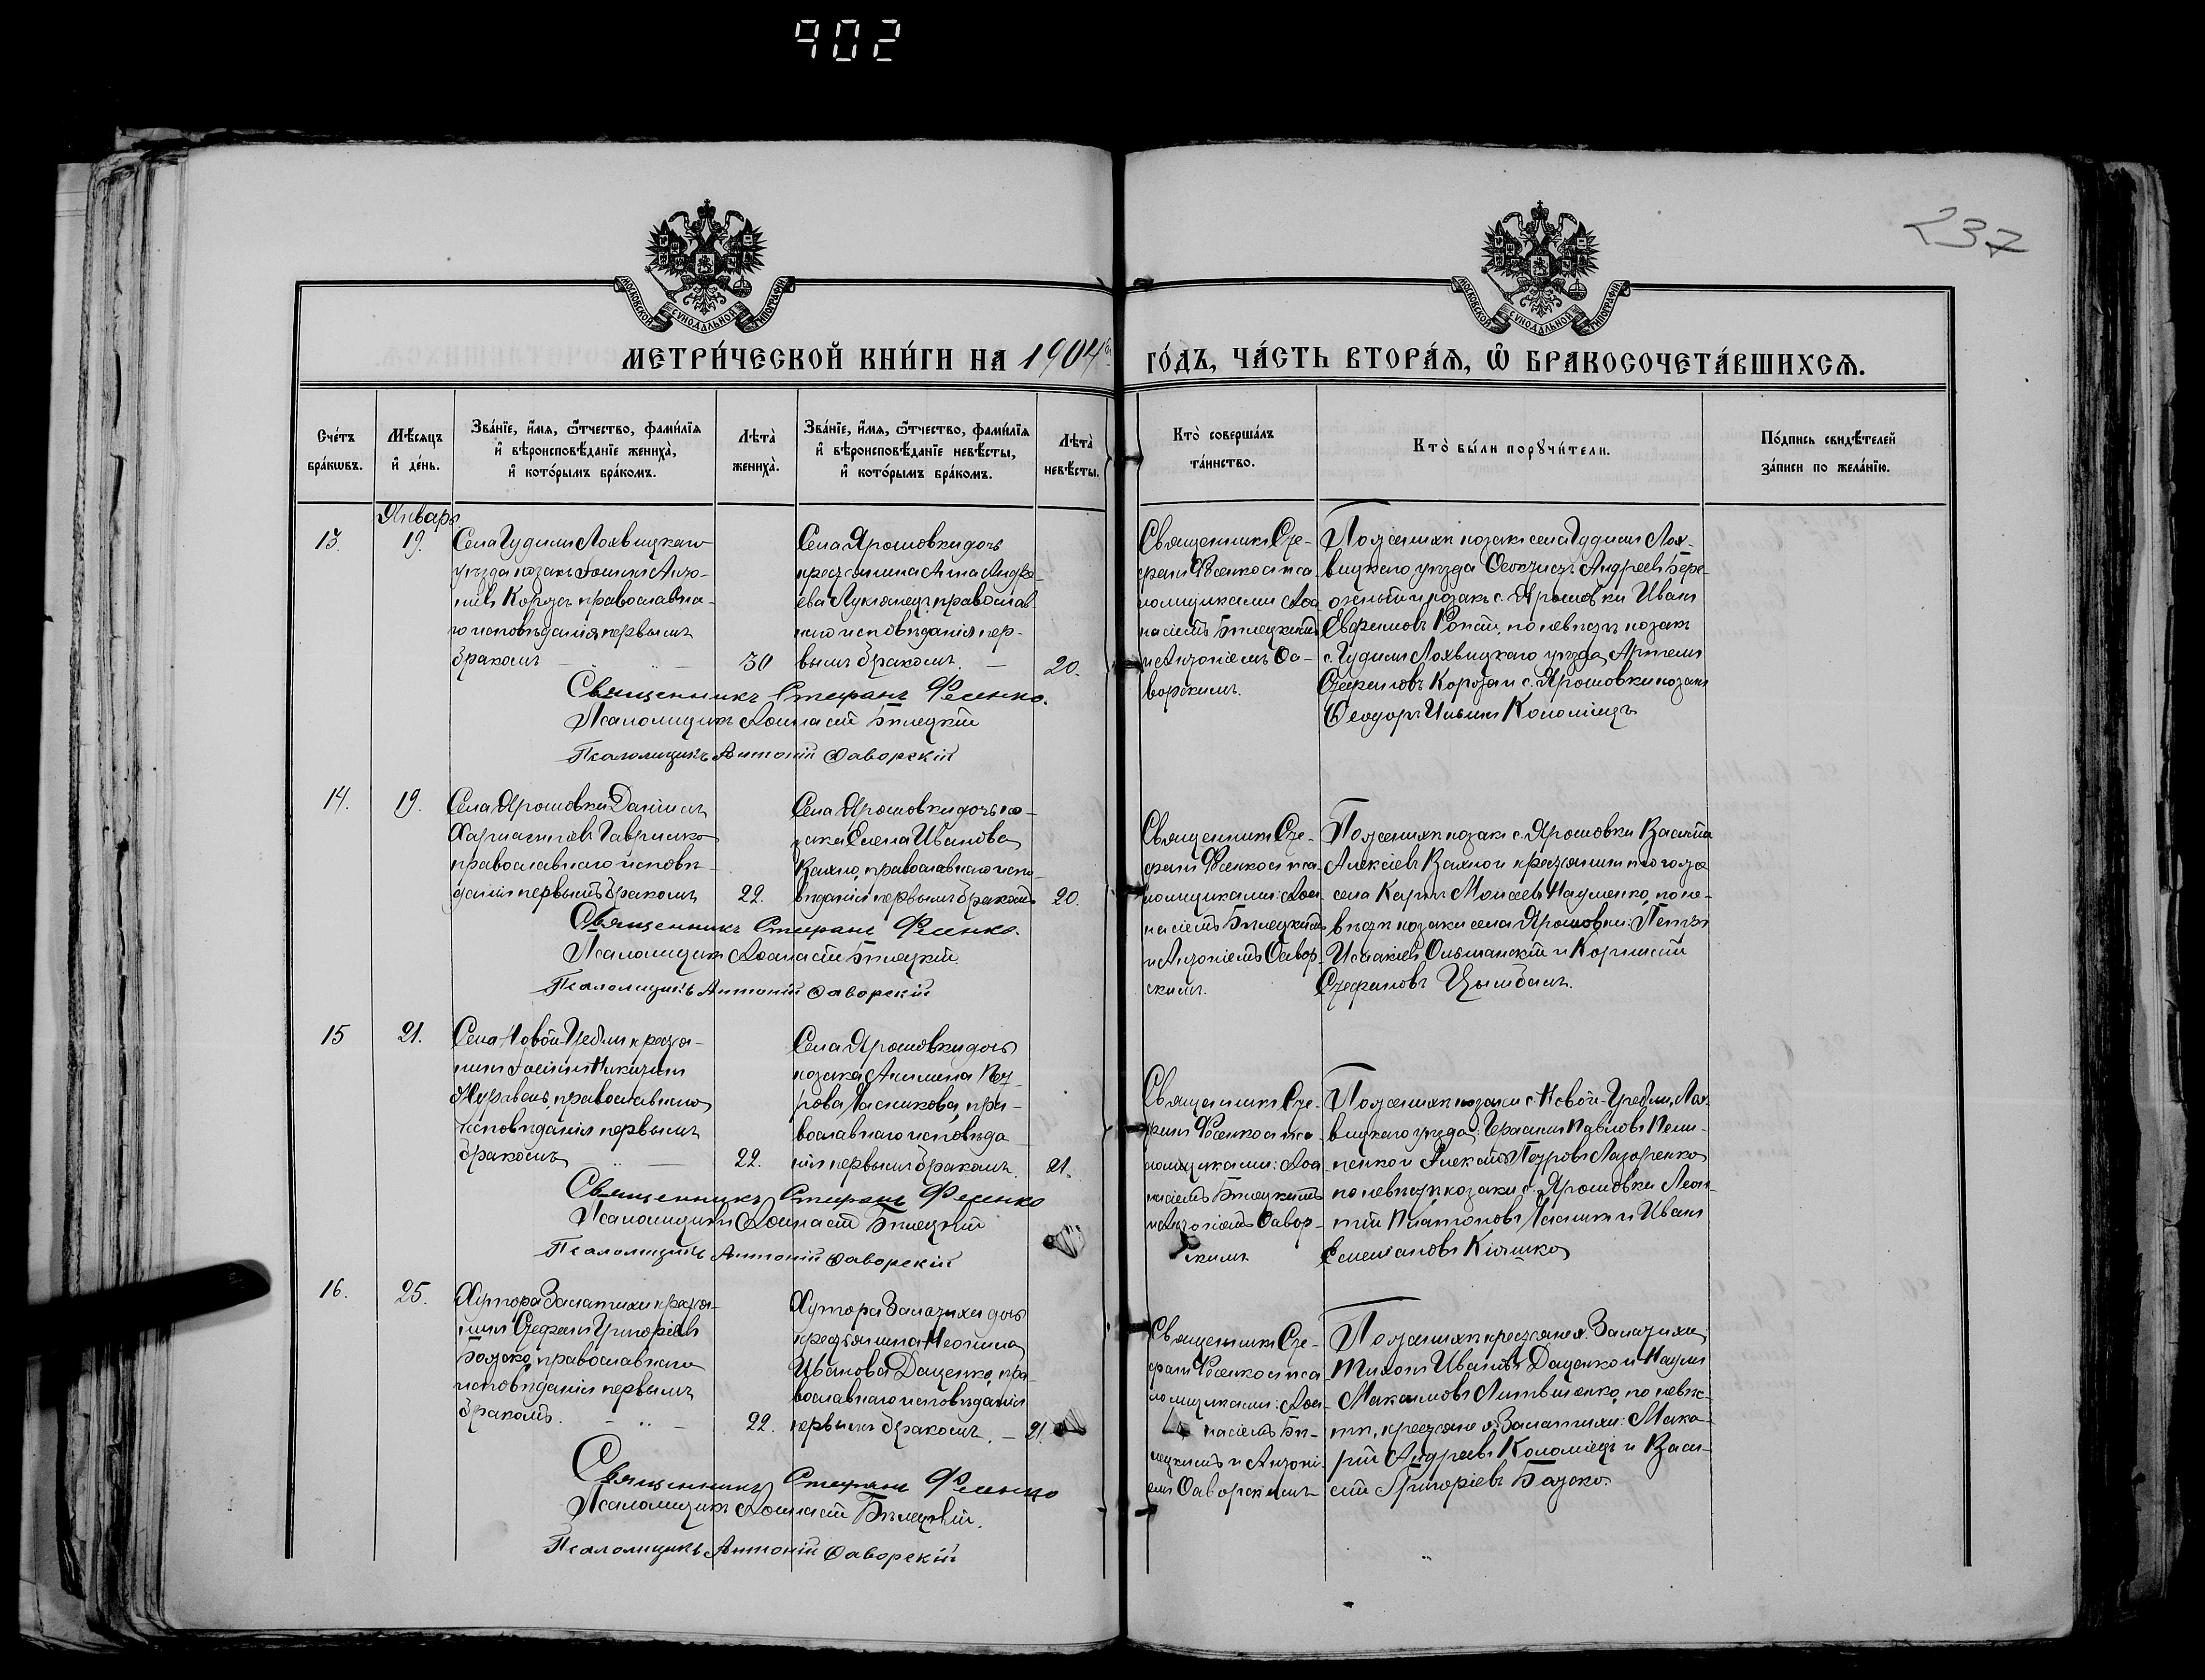 902
237
МОСКОВСКОЙ СУНОДАЛЬНОЙ ТИПОГРАФІИ
МОСКОВСКОЙ СУНОДАЛЬНОЙ ТИПОГРАФІИ
МЕТРИ́ЧЕСКОЙ КНИ́ГИ НА 1904й ГО́ДЪ, ЧА́СТЬ ВТОРА́Я, Ѡ БРАКОСОЧЕТА́ВШИХСѦ.
Сче́тъ
бра́кѡвъ.
Мѣ́сяцъ
и҆ де́нь.
Зва́нїе, и҆́мя, ѻ҆́тчество, фами́лїя
и҆ вѣроисповѣ́данїе жениха̀,
и҆ кото́рымъ бра́комъ.
Лѣта̀
жениха̀.
Зва́нїе, и҆́мя, ѻ҆́тчество, фами́лїя
и҆ вѣроисповѣ́данїе невѣ́сты,
и҆ кото́рымъ бра́комъ.
Лѣта̀
невѣ́сты.
Кто̀ соверша́лъ
та́инство.
Кто̀ бы́ли порꙋчи́тели.
По́дпись свидѣ́телей
за́писи по жела́нїю.
Январь
13.
19.
Села Гудимъ Лохвицкаго
уѣзда козакъ Іоаннъ Анто-
ніевъ Корозъ православна-
го исповѣданія первымъ
бракомъ
30
Села Ярошовки дочь
крестьянина Анна Андре-
ева Лукьянецъ, православ-
наго исповѣданія пер-
вымъ бракомъ.
20.
Священникъ Сте-
фанъ Фесенко съ пса-
ломщиками Аѳа-
насіемъ Бѣлецкимъ
и Антоніемъ Ѳа-
ворскимъ.
По женихѣ козакъ села Гудимъ Лох-
вицкаго уѣзда Ѳеоктистъ Андреевъ Бере-
и козакъ с. Ярошовки Иванъ
Евфимовъ по невѣстѣ козакъ
с. Гудимъ Лохвицкаго уѣзда, Артемъ
Стефановъ Корозъ и с. Ярошовки козакъ
Ѳеодоръ Ильинъ Коломіецъ
Священникъ Стефанъ Фесенко.
Псаломщикъ Аѳанасій Бѣлецкій
Псаломщикъ Антоній Ѳаворскій
14.
19.
Села Ярошовки Даніилъ
Харлампіевъ Гавриленко
православнаго исповѣ-
данія первымъ бракомъ
22.
Села Ярошовки дочь ко-
зака Елена Иванова
Вахно, православнаго испо-
вѣданія первымъ бракомъ
20.
Священникъ Сте-
фанъ Фесенко съ пса-
ломщиками: Аѳа-
насіемъ Бѣлецкимъ
и Антоніемъ Ѳавор-
скимъ.
По женихѣ козакъ с. Ярошовки Василій
Алексіевъ Вахно и крестьянинъ того же
села Карпъ Моисеевъ Науменко, по не-
вѣстѣ козаки села Ярошовки: Петръ
Исаакіевъ Ольшанскій и Корнилій
Стефановъ Цымбалъ.
Священникъ Стефанъ Фесенко.
Псаломщикъ Аѳанасій Бѣлецкій.
Псаломщикъ Антоній Ѳаворскій
15
21.
Села Новой-Гребли крестья-
нинъ Іоаннъ Никитинъ
Журавель, православнаго
исповѣданія первымъ
бракомъ
22.
Села Ярошовки дочь
козака Акилина Пет-
рова Ласникова, пра-
вославнаго исповѣда-
нія первымъ бракомъ
21.
Священникъ Сте-
фанъ Фесенко съ пса-
ломщиками: Аѳа-
насіемъ Бѣлецкимъ
и Антоніемъ Ѳавор-
скимъ
По женихѣ козаки с. Новой-Гребли, Лох-
вицкаго уѣзда: Герасимъ Павловъ
и Алексій Петровъ Лазоренко
по невѣстѣ козаки с. Ярошовки Леон-
тій Платоновъ и Иванъ
Емеліановъ Кіяшко
Священникъ Стефанъ Фесенко
Псаломщикъ Аѳанасій Бѣлецкій
Псаломщикъ Антоній Ѳаворскій
16.
25.
Хутора Залатихи крестья-
нинъ Стефанъ Григоріевъ
Божко, православнаго
исповѣданія первымъ
бракомъ.
22.
Хутора Залатихи дочь
крестьянина Неонила
Иванова Даценко, пра-
вославнаго исповѣданія
первымъ бракомъ.
21.
Священникъ Сте-
фанъ Фесенко съ пса-
ломщиками: Аѳа-
насіемъ Бѣ-
лецкимъ и Антоні-
емъ Ѳаворскимъ
По женихѣ крестьяне х. Залатихи
Тихонъ Ивановъ Даценко и Наумъ
Максимовъ Литвиненко, по невѣс-
тѣ, крестьяне х. Залатихи: Мака-
рій Андреевъ Коломіецъ и Васи-
лій Григоріевъ Божко.
Священникъ Стефанъ Фесенко
Псаломщикъ Аѳанасій Бѣлецкій.
Псаломщикъ Антоній Ѳаворскій